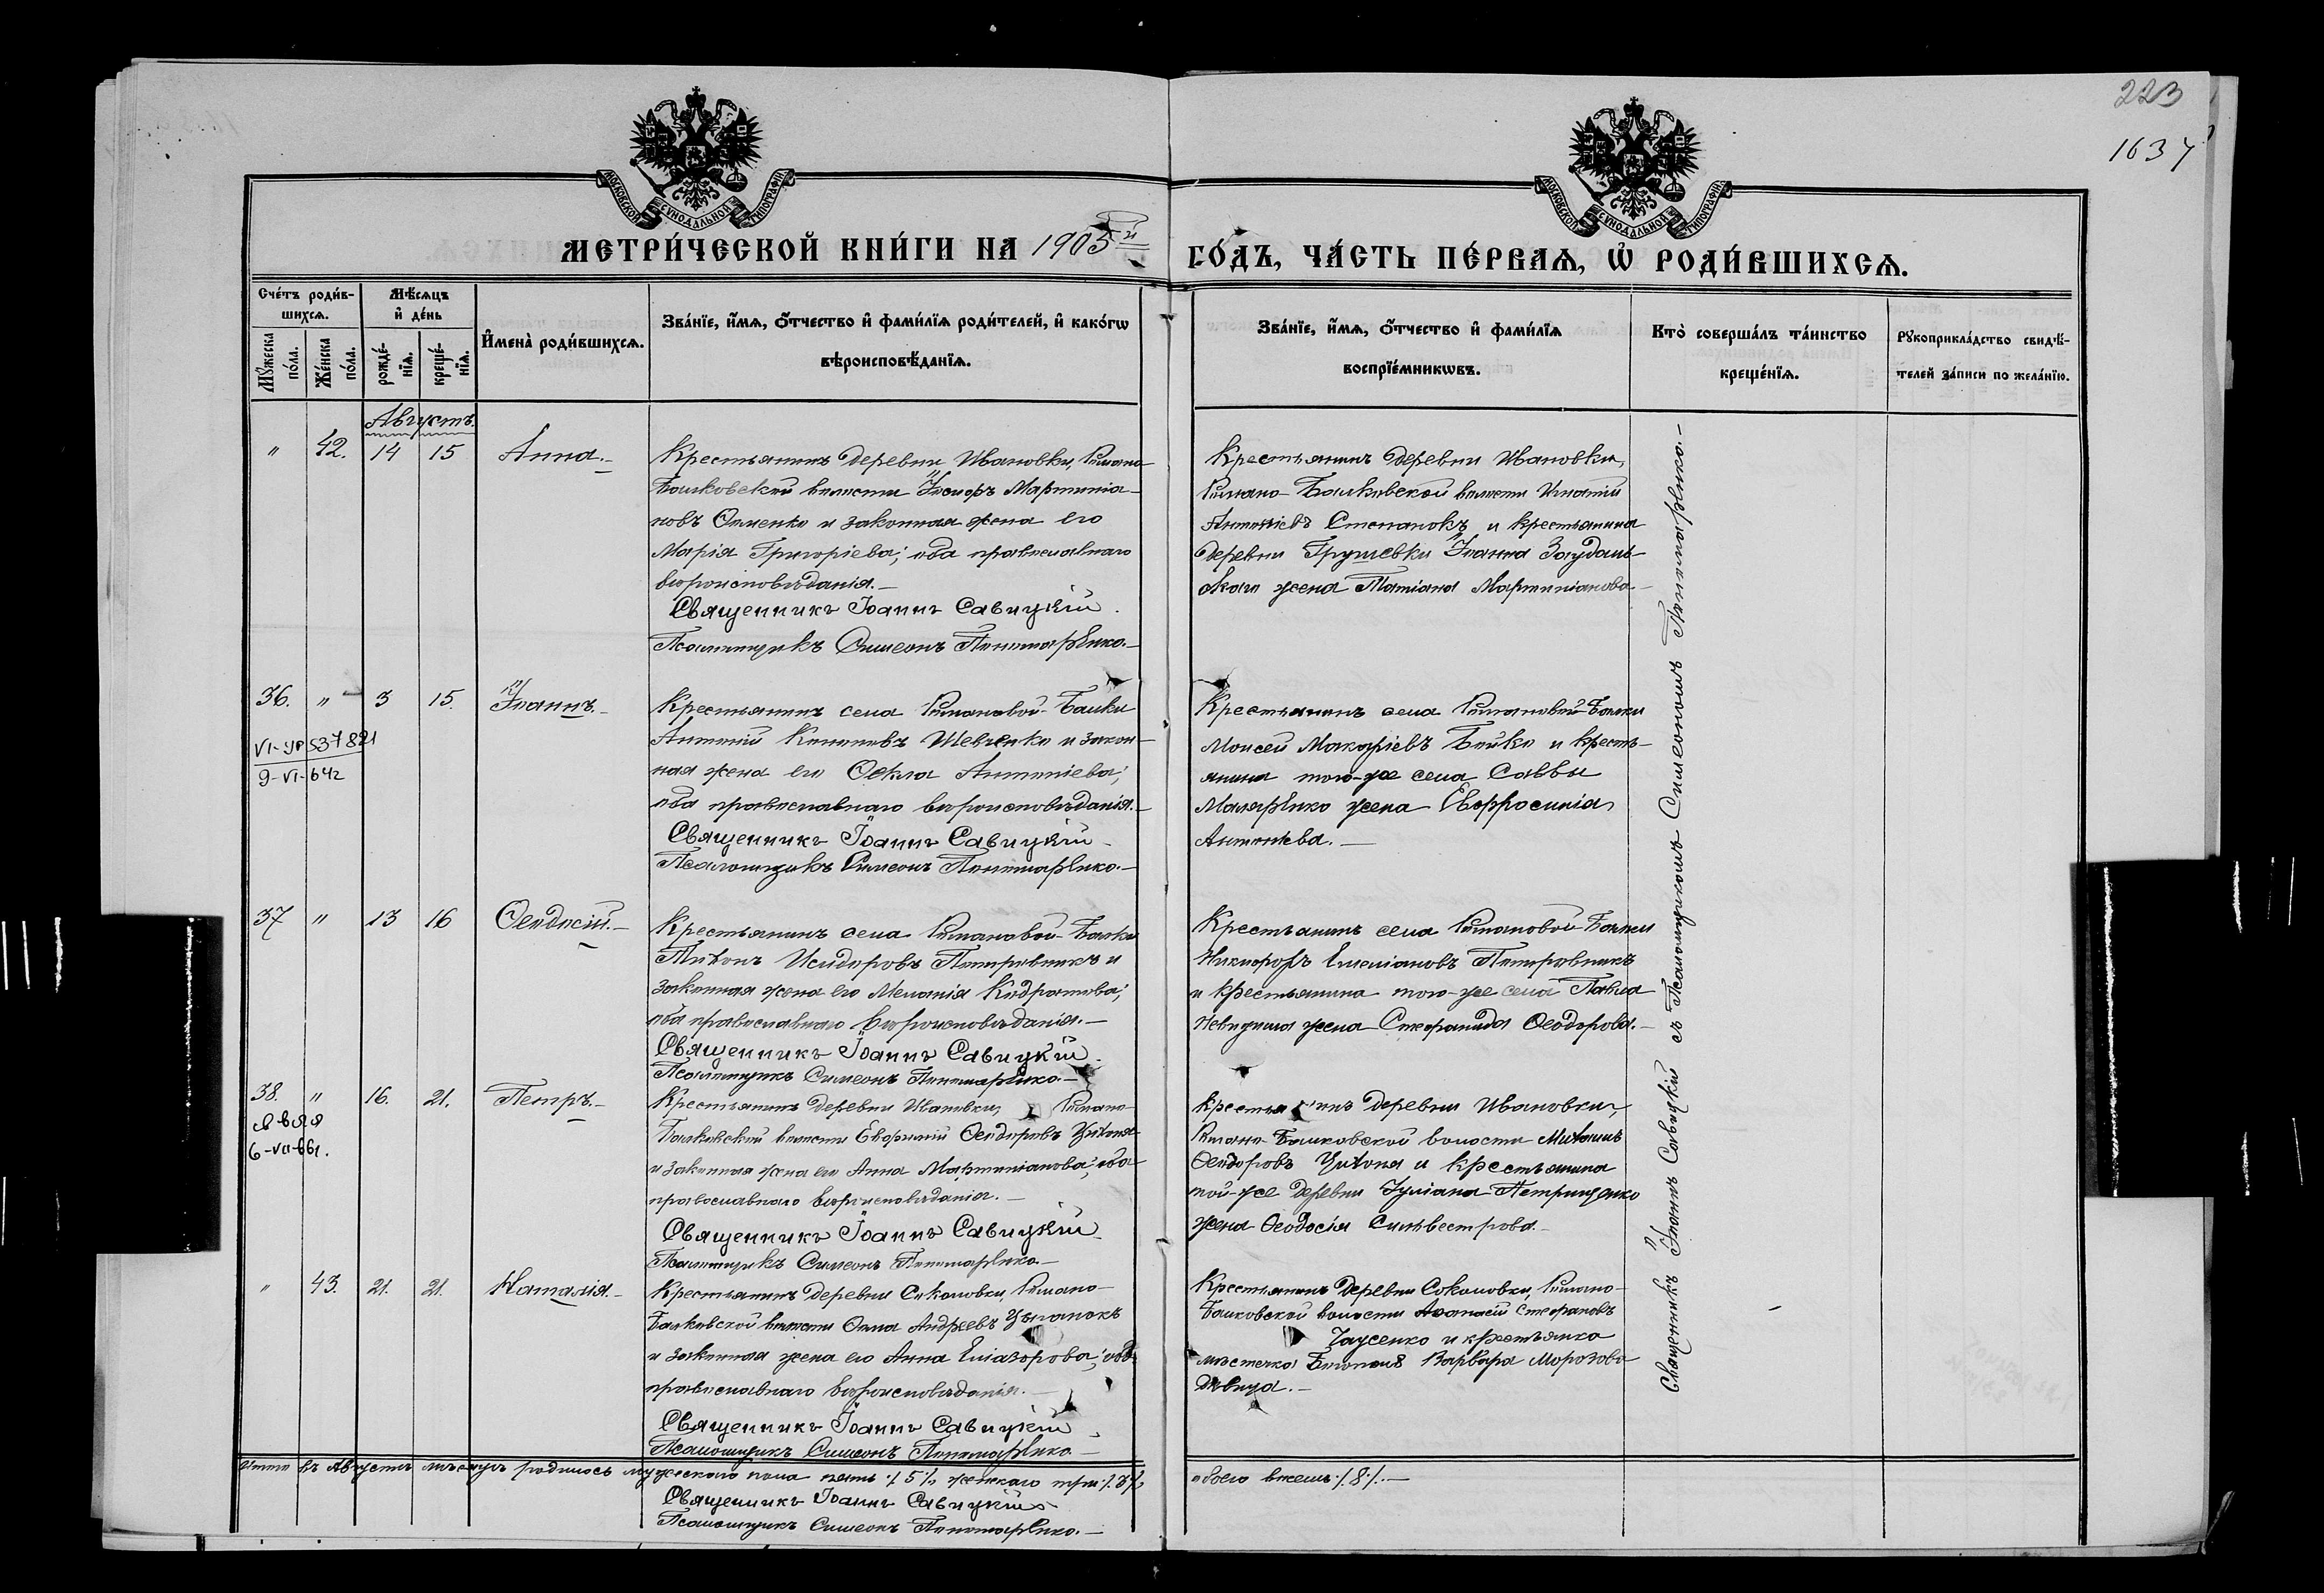 223
1637
МОСКОВСКОЙ СѴНОДАЛЬНОЙ ТИПОГРАФІИ
МОСКОВСКОЙ СѴНОДАЛЬНОЙ ТИПОГРАФІИ
МЕТРИ́ЧЕСКОЙ КНИ́ГИ НА 1905й ГО́ДЪ, ЧА́СТЬ ПЕ́РВАѦ, Ѡ҆ РОДИ́ВШИХСѦ.
Сче́тъ роди́в-
шихсѧ.
Мѣ́сѧцъ
и҆ де́нь
Мꙋ́жеска
по́ла.
Же́нска
по́ла.
рожде́-
нїѧ.
креще́-
нїѧ.
И҆мена̀ роди́вшихсѧ.
Зва́нїе, и҆́мѧ, ѻ҆́тчество и҆ фами́лїѧ роди́телей, и҆ како́гѡ
вѣроисповѣ́данїѧ.
Зва́нїе, и҆́мѧ, ѻ҆́тчество и҆ фами́лїѧ
воспрїе́мникѡвъ.
Кто̀ соверша́лъ та́инство
креще́нїѧ.
Рꙋкоприкла́дство свидѣ́-
телей за́писи по жела́нїю.
Августъ.
" 42. 14 15 Анна.-
Крестьянинъ деревни Ивановки, Римано-
Балковской волости Іосифъ Мартиніа-
новъ и законная жена его
Марія Григоріева; оба православнаго
вѣроисповѣданія.-
Священникъ Іоаннъ Савицкій.
Псаломщикъ Симеонъ Пономаренко.-
Крестьянинъ деревни Ивановки,
Римано-Балковской волости Игнатій
Антоніевъ Степанокъ и крестьянина
деревни Грушевки Іоанна
жена Татіана Мартиніанова.-
36. " 3 15. Іоаннъ.-
VI-УР 537821
9-VI-64г
Крестьянинъ села Римановой-Балки
Антоній Кононовъ Шевченко и закон-
ная жена его Ѳекла Антоніева;
оба православнаго вѣроисповѣданія.-
Священникъ Іоаннъ Савицкій.
Псаломщикъ Симеонъ Пономаренко.-
Крестьянинъ села Римановой-Балки
Моисей Макаріевъ Бойко и кресть-
янина того-же села Саввы
Маляренко жена Евфросинія
Антоніева.-
37 " 13 16 Ѳеодосій.-
Крестьянинъ села Римановой-Балки
Тихонъ Исидоровъ Петровникъ и
законная жена его Меланія Кодратова;
оба православнаго вѣроисповѣданія.-
Священникъ Іоаннъ Савицкій.
Псаломщикъ Симеонъ Пономаренко.-
Крестьянинъ села Римановой-Балки
Никифоръ Емеліановъ Петровникъ
и крестьянина того-же села Павла
жена Стефанида Ѳеодорова.-
38. " 16. 21. Петръ.-
6-VII-66г.
Крестьянинъ деревни Ивановки, Римано-
Балковской волости Евфимій Ѳеодоровъ
и законная жена его Анна Мартиніанова; оба
православнаго вѣроисповѣданія.-
Священникъ Іоаннъ Савицкій.
Псаломщикъ Симеонъ Пономаренко.-
Крестьянинъ деревни Ивановки,
Римано-Балковской волости Михаилъ
Ѳеодоровъ и крестьянина
той-же деревни Іуліана Петрищенко
жена Ѳеодосія Сильвестрова.-
" 43. 21. 21. Наталія.-
Крестьянинъ деревни Соколовки, Римано-
Балковской волости Ѳома Андреевъ Цыганокъ
и законная жена его Анна Еліазорова; оба
православнаго вѣроисповѣданія.-
Священникъ Іоаннъ Савицкій.
Псаломщикъ Симеонъ Пономаренко.-
Крестьянинъ деревни Соколовки, Римано-
Балковской волости Аѳанасій Стефановъ
Чаусенко и крестьянка
мѣстечка Варвара Морозова
дѣвица.-
Священникъ Іоаннъ Савицкій съ Псаломщикомъ Симеономъ Пономаренко.-
Итого въ Августѣ мѣсяцѣ родилось мужескаго пола пять ./.5./. женскаго три ./.3./. обоего восемь ./.8./.-
Священникъ Іоаннъ Савицкій
Псаломщикъ Симеонъ Пономаренко.-